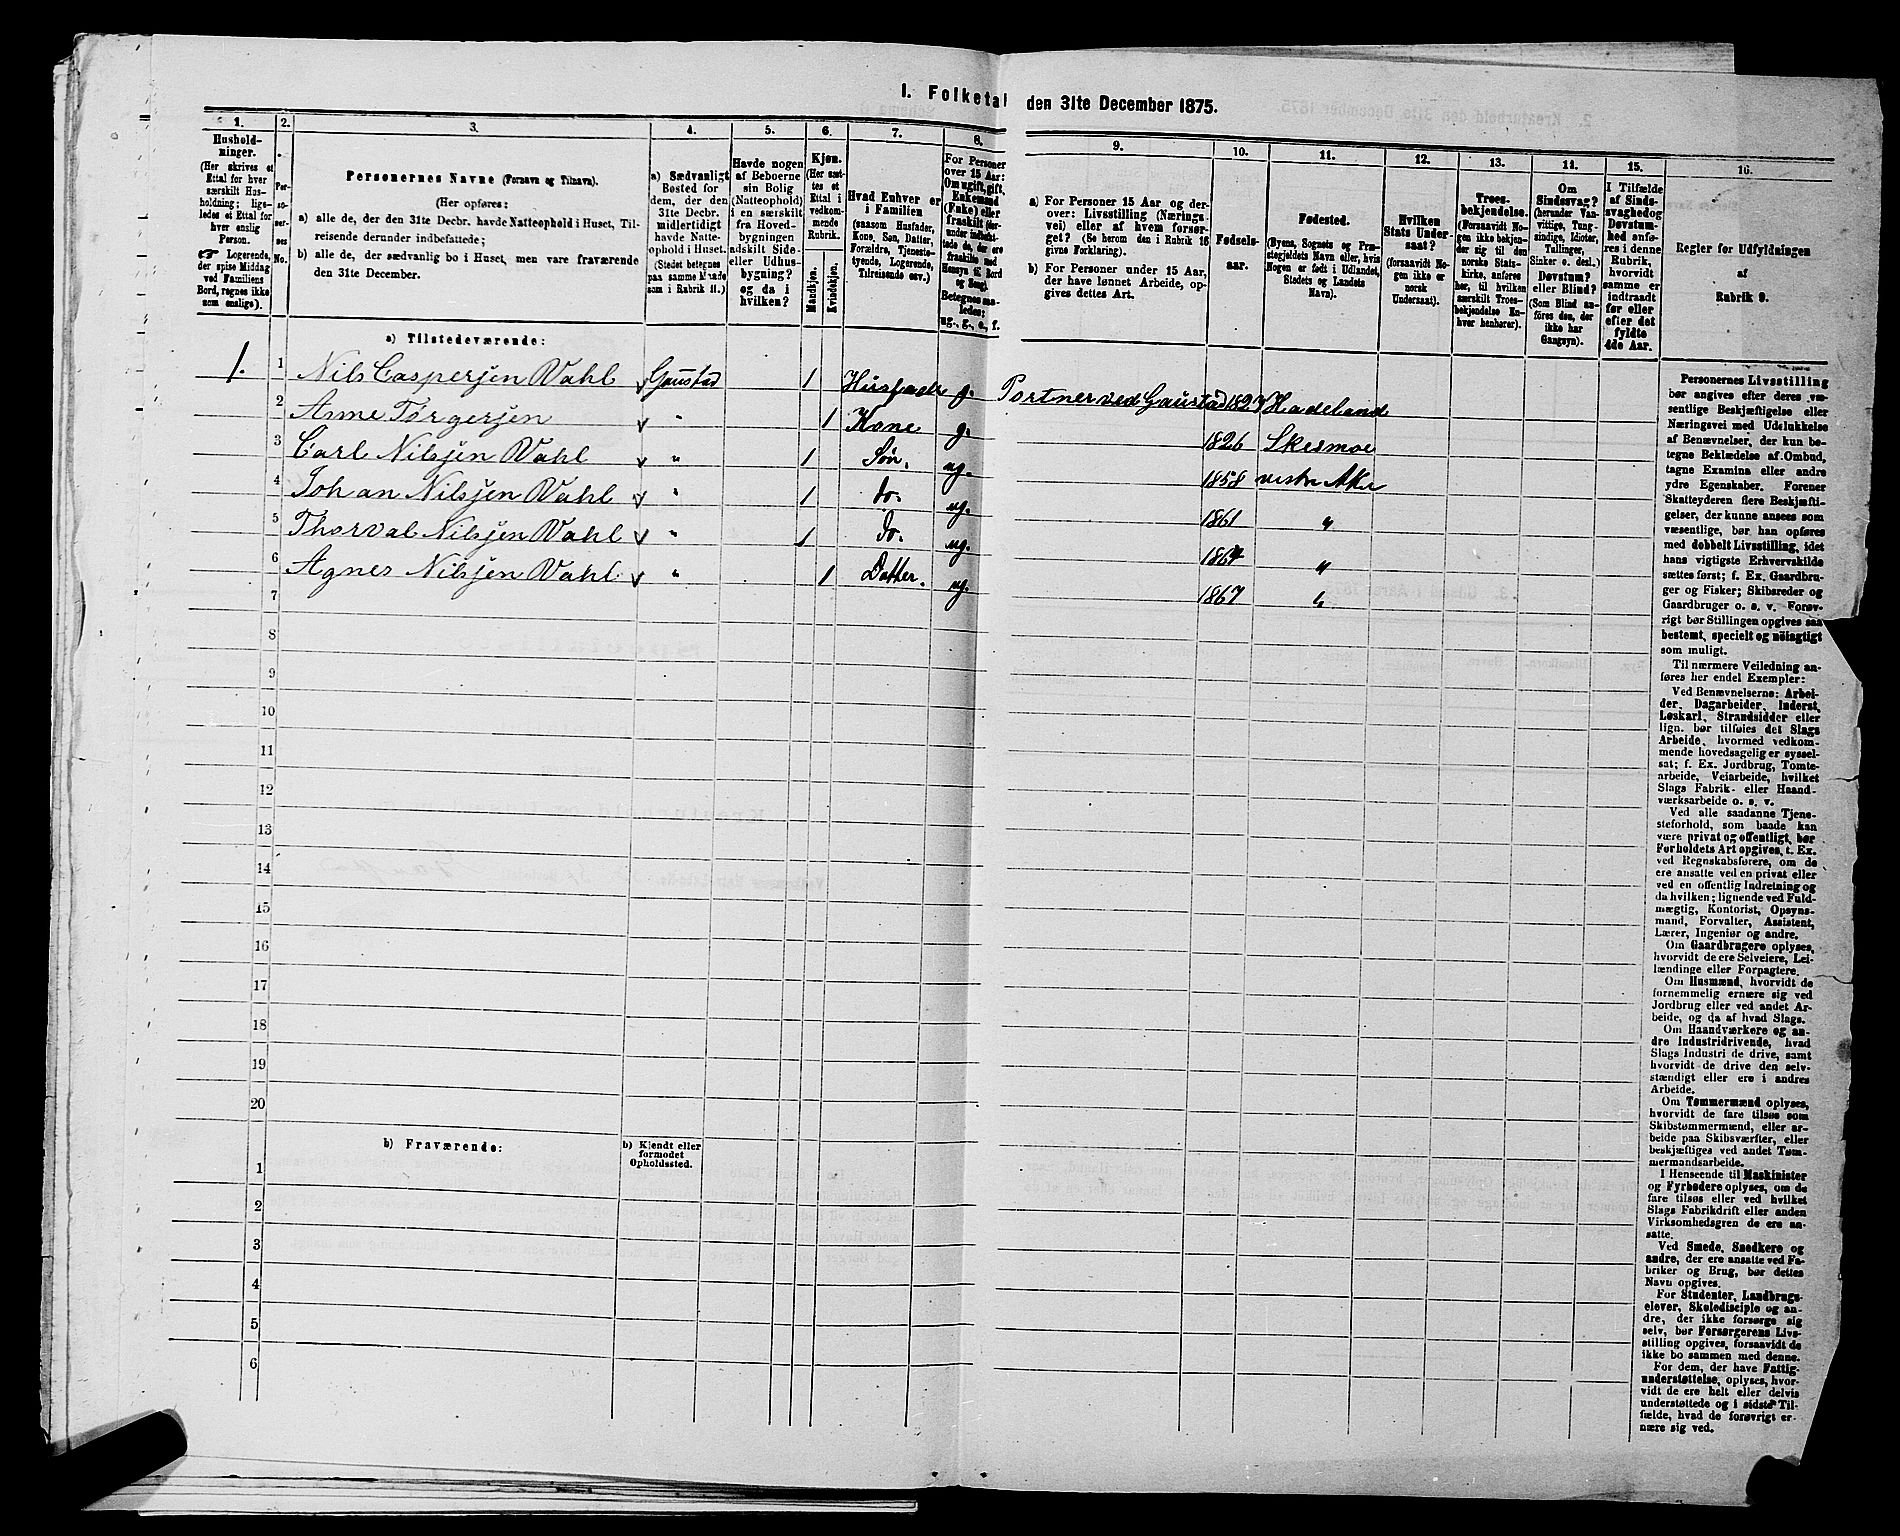 I. Folketal den 31te December 1875.
1.
Hushold-
ninger.
(Her skrives et
Ettal for hver
særskilt Hus-
holdning; lige-
ledes et Ettal for
hver enslig
Person.
☞ Logerende,
der spise Middag
ved Familiens
Bord, regnes ikke
som enslige).
2.
Per-
so-
ner-
nes
No.
3.
Personernes Navne (Fornavn og Tilnavn).
(Her opføres:
a) alle de, der den 31te Decbr. havde Natteophold i Huset, Til-
reisende derunder indbefattede;
b) alle de, der sædvanlig bo i Huset, men vare fraværende
den 31te December.
4.
a) Sædvanligt
Bosted for
dem, der den
31te Decbr.
midlertidigt
havde Natte-
ophold i Huset.
(Stedet betegnes
paa samme Maade
som i Rubrik 11.)
5.
Havde nogen
af Beboerne
sin Bolig
(Natteophold)
i en særskilt
fra Hoved-
bygningen
adskilt Side-
eller Udhus-
bygning?
og da i
hvilken?
6.
Kjøn.
(Her sæt-
tes et
Ettal i
vedkom-
mende
Rubrik.
Mandkjøn.
Kvindekjøn.
7.
Hvad Enhver er
i Familien
(saasom Husfader,
Kone, Søn, Datter,
Forældre, Tjeneste-
tyende, Logerende,
Tilreisende osv.)
8.
For Personer
over 15 Aar:
Om ugift, gift,
Enkemand
(Enke) eller
fraskilt
Betegnes saa-
ledes:
ug., g., e., f.
9.
a) For Personer 15 Aar og der-
over: Livsstilling (Nærings-
vei) eller af hvem forsør-
get? (Se herom den i Rubrik 16
givne Forklaring).
b) For Personer under 15 Aar,
der have lønnet Arbeide, op-
gives dettes Art.
10.
Fødsels-
aar.
11.
Fødested.
(Byens, Sognets og Præ-
stegjeldets Navn eller, hvis
Nogen er født i Udlandet,
Stedets og Landets
Navn).
12.
Hvilken
Stats Under-
saat?
(forsaavidt No-
gen ikke er
norsk
Undersaat).
13.
Troes-
bekjendelse.
(Forsaavidt No-
gen ikke bekjen-
der sig til den
norske Stats-
kirke, anføres
her, til hvilken
særskilt Troes-
bekjendelse En-
hver henhører).
14.
Om
Sindssvag?
(herunder Van-
vittige, Tung-
sindige, Idioter,
Tullinger,
Sinker o. desl.)
Døvstum?
eller Blind?
(Som Blind an-
føres den, der
ikke har
Gangsyn).
15.
I Tilfælde
af Sinds-
svaghed og
Døvstum-
hed anfø-
res i denne
Rubrik,
hvorvidt
samme er
indtraadt
før eller
efter det
fyldte
4de Aar.
16.
Regler for Udfyldningen
af
Rubrik 9.
a) Tilstedeværende:
1. 1 Nils Caspersen Dahl Gaustad 1 Husfader g. Portner ved Gaustad 1827 Hadeland
2 Anne Torgersen " 1 Kone g. 1826 Skesmoe
3 Carl Nilsjen Dahl " 1 Søn. ug. 1858 vestre Aker
4 Johan Nilsjen Dahl " 1 do. ug. 1861 "
5 Thorval Nilsjen Dahl " 1 do. ug. 1864 "
6 Agnes Nilsjen Dahl " 1 Datter. ug. 1867 "
7
8
9
10
11
12
13
14
15
16
17
18
19
20
b) Fraværende:
b) Kjendt eller
formodet
Opholdssted.
1
2
3
4
5
6
Personernes Livsstilling
bør angives efter deres væ-
sentlige Beskjæftigelse eller
Næringsvei med Udelukkelse
af Benævnelser, der kun be-
tegne Beklædelse af Ombud,
tagne Examina eller andre
ydre Egenskaber. Forener
Skatteyderen flere Beskjæfti-
gelser, der kunne ansees som
væsentlige, bør han opføres
med dobbelt Livsstilling, idet
hans vigtigste Erhvervskilde
sættes først; f. Ex. Gaardbru-
ger og Fisker; Skibsreder og
Gaardbruger o. s. v. Forøv-
rigt bør Stillingen opgives saa
bestemt, specielt og nøiagtigt
som muligt.
Til nærmere Veiledning an-
føres her endel Exempler:
Ved Benævnelserne: Arbei-
der, Dagarbeider, Inderst,
Løskarl, Strandsidder eller
lign. bør tilføies det Slags
Arbeide, hvormed vedkom-
mende hovedsagelig er syssel-
sat; f. Ex. Jordbrug, Tomte-
arbeide, Veiarbeide, hvilket
Slags Fabrik- eller Haand-
værksarbeide o. s. v.
Ved alle saadanne Tjene-
steforhold, som baade kan
være privat og offentligt, bør
Forholdets Art opgives, t. Ex.
ved Regnskabsførere, om de
ere ansatte ved en privat eller
ved en offentlig Indretning og
da hvilken; lignende ved Fuld-
mægtig, Kontorist, Opsyns-
mand, Forvalter, Assistent,
Lærer, Ingeniør og andre.
Om Gaardbrugere oplyses,
hvorvidt de ere Selveiere, Lei-
lændinge eller Forpagtere.
Om Husmænd, hvorvidt de
fornemmelig ernære sig ved
Jordbrug eller ved andet Ar-
beide, og da af hvad Slags.
Om Haandværkere og an-
dre Industridrivende, hvad
Slags Industri de drive, samt
hvorvidt de drive den selv-
stændigt eller ere i andres
Arbeide.
Om Tømmermænd oplyses,
hvorvidt de fare tilsøs som
Skibstømmermænd, eller ar-
beide paa Skibsværfter, eller
beskjæftiges ved andet Tøm-
mermandsarbeide.
I Henseende til Maskinister
og Fyrbødere oplyses, om de
fare tilsøs eller ved hvilket
Slags Fabrikdrift eller anden
Virksomhedsgren de ere an-
satte.
Ved Smede, Snedkere og
andre, der ere ansatte ved Fa-
briker og Brug, bør dettes
Navn opgives.
For Studenter, Landbrugs-
elever, Skoledisciple og an-
dre, der ikke forsørge sig
selv, bør Forsørgerens Livs-
stilling opgives, forsaavidt de
ikke bo sammen med denne.
For dem, der have Fattig-
understøttelse, oplyses, hvor-
vidt de ere helt eller delvis
understøttede og i sidste Til-
fælde, hvad de forøvrigt er-
nære sig ved.